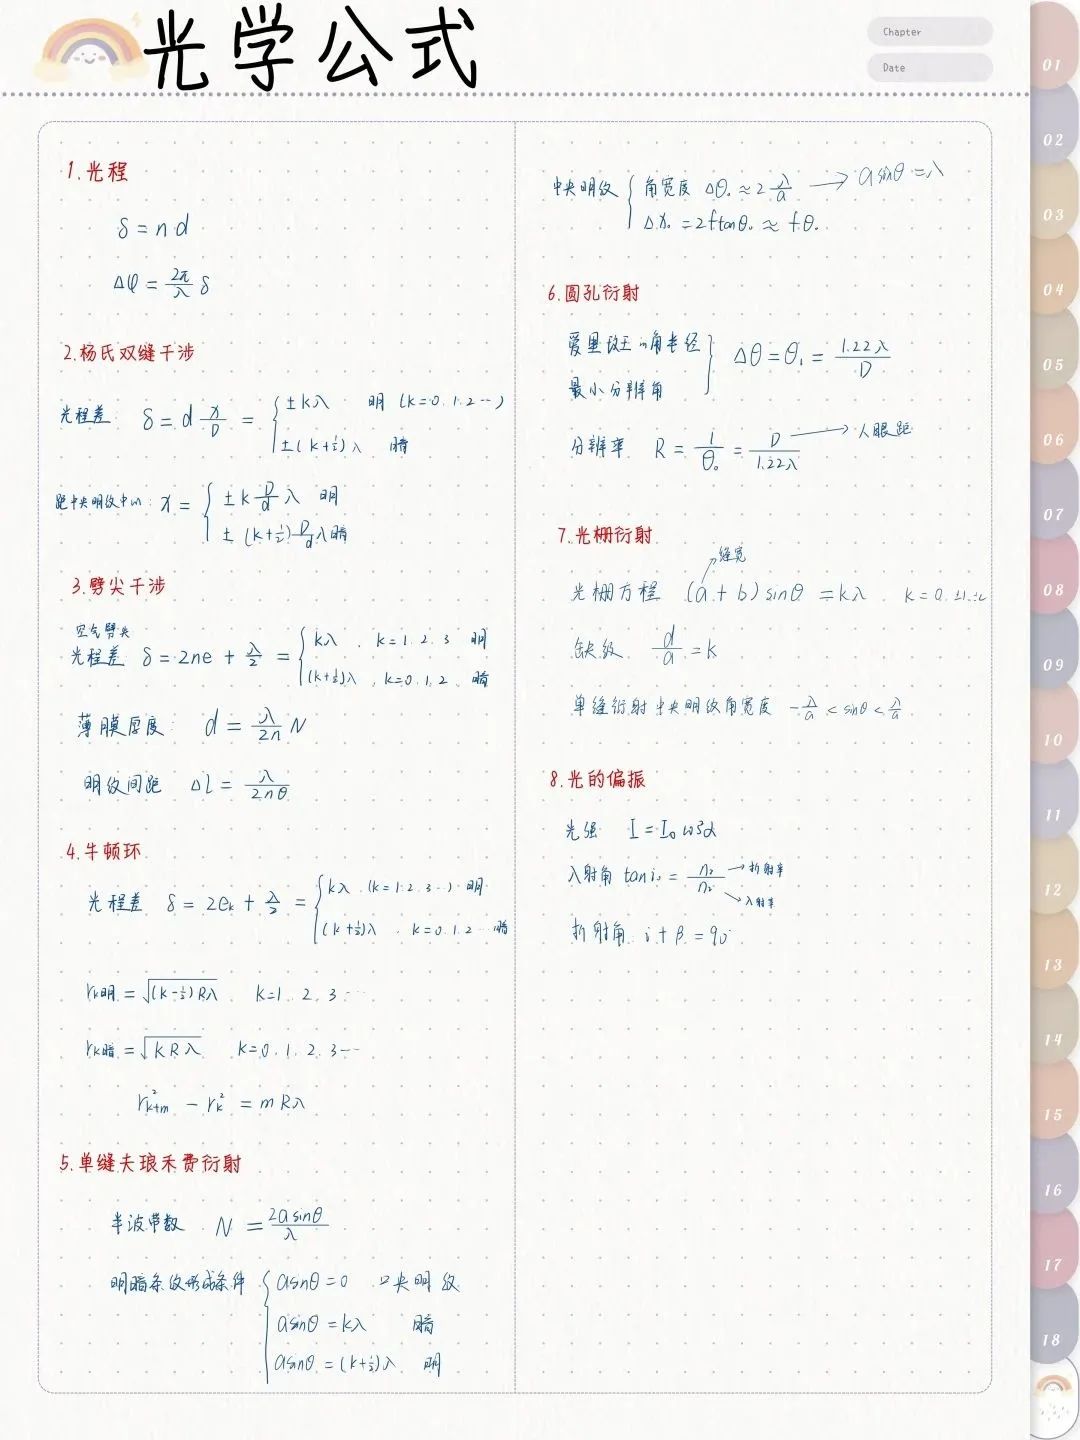 光学公式
Chapter
Date
1.光程
δ = nd
Δφ = 2π/λ δ
2.杨氏双缝干涉
光程差: δ = d x/D = { ±kλ 明 (k=0.1.2…)
±(k+½)λ 暗
距中央明纹中心: x = { ±k D/d λ 明
±(k+½) D/d λ 暗
3.劈尖干涉
空气劈尖
光程差 δ = 2ne + λ/2 = { kλ , k=1.2.3 明
(k+½)λ , k=0.1.2 、暗
薄膜厚度: d = λ/2n N
明纹间距 Δl = λ/2nθ
4.牛顿环
光程差 δ = 2eₖ + λ/2 = { kλ .(k=1.2.3…) 明
(k+½)λ . k=0.1.2… 暗
rk明 = √(k-½)Rλ k=1.2.3…
rk暗 = √kRλ k=0.1.2.3…
r²k+m - rk² = mRλ
5.单缝夫琅禾费衍射
半波带数 N = 2asinθ/λ
明暗条纹形成条件 { asinθ=0 中央明纹
asinθ=kλ 暗
asinθ=(k+½)λ 明
中央明纹 { 角宽度 Δθ₀ ≈ 2 λ/a → asinθ=λ
Δx₀ = 2ftanθ₀ ≈ fθ₀
6.圆孔衍射
爱里斑的角半径
最小分辨角 } Δθ = θ₁ = 1.22λ/D
分辨率 R = 1/θ₀ = D/1.22λ → 人眼距
7.光栅衍射
缝宽
光栅方程 (a+b)sinθ = kλ . k=0.±1.±2
缺级 d/a = k
单缝衍射中央明纹角宽度 -λ/a < sinθ < λ/a
8.光的偏振
光强 I = I₀cos²α
入射角 tani₀ = n₂/n₂ → 折射率
→ 入射率
折射角 i+β = 90°
01
02
03
04
05
06
07
08
09
10
11
12
13
14
15
16
17
18